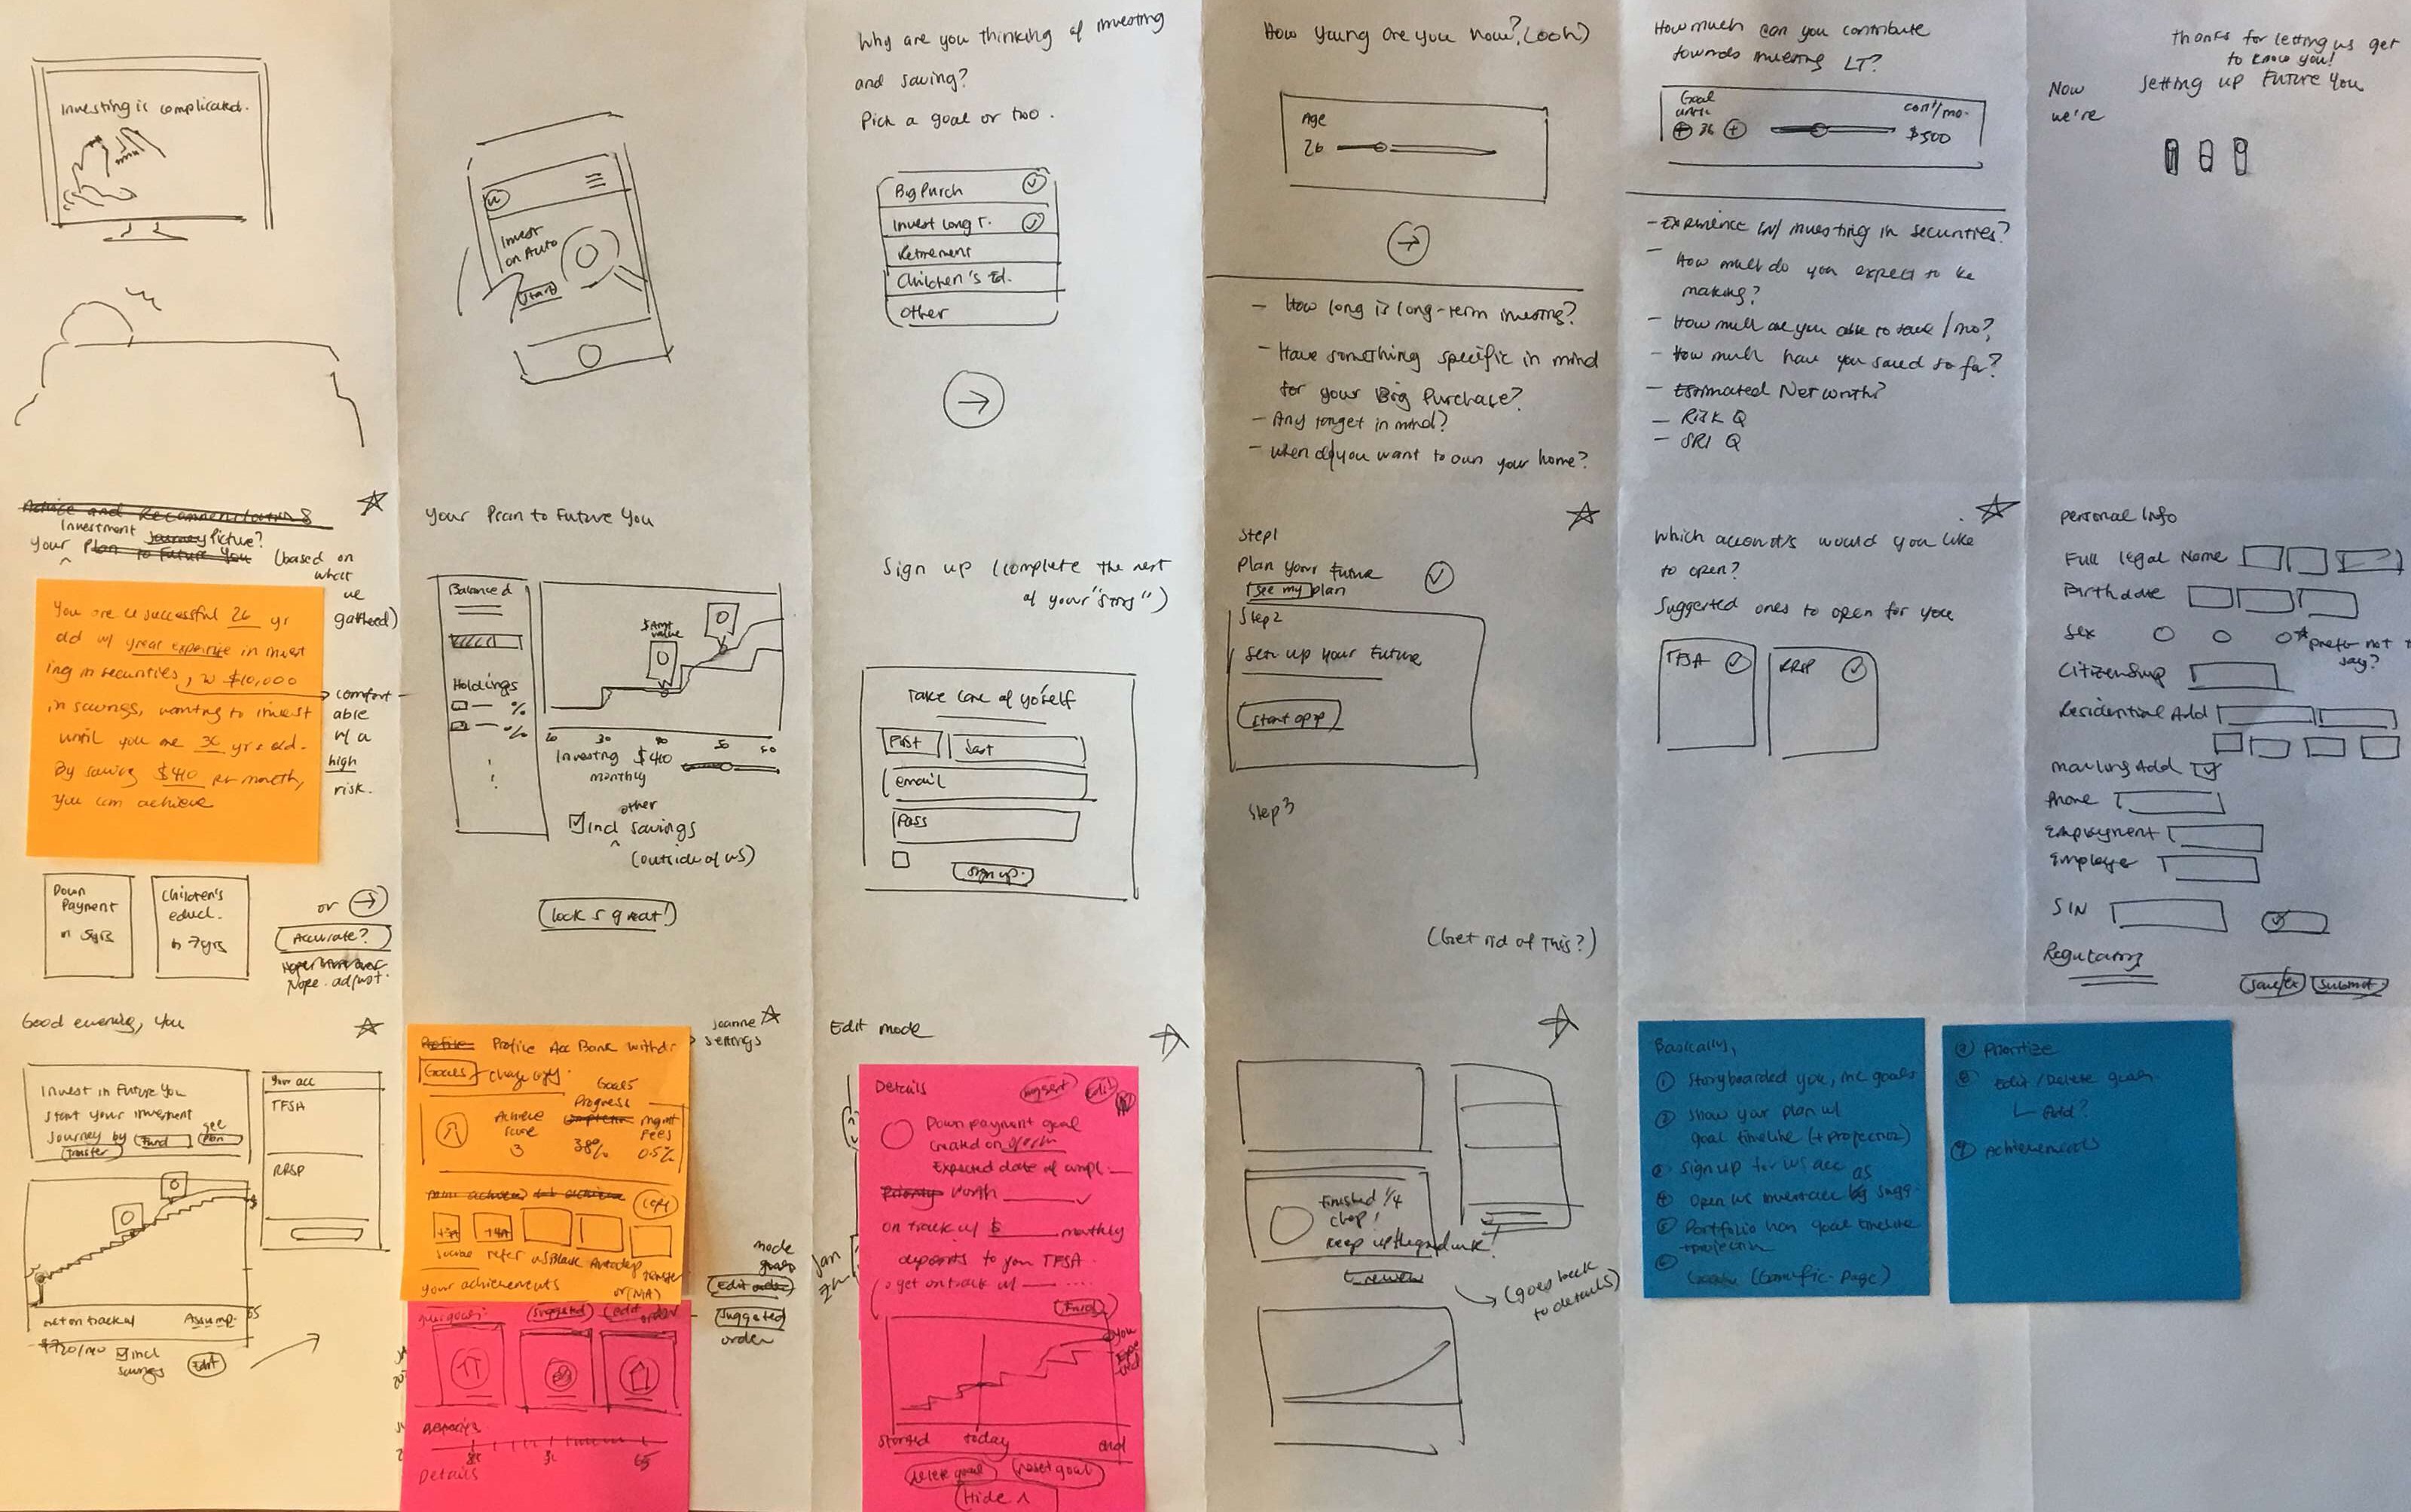 Investing is complicated.
Invest
on Auto
Start
Why are you thinking of investing
and saving?
Pick a goal or two.
Big Purch
Invest Long T.
Retirement
Children's Ed.
Other
How young are you now? (ooh)
Age
26
- How long is long-term investing?
- Have something specific in mind
for your Big Purchase?
- Any target in mind?
- When do you want to own your home?
How much can you contribute
towards investing LT?
Goal
until
36
cont/mo.
$500
- Experience w/ investing in securities?
- How much do you expect to be
making?
- How much are you able to save/mo?
- How much have you saved so far?
- Estimated Net worth?
- Risk Q
- SRI Q
Thanks for letting us get
to know you!
Now
we're
setting up Future You
Advice and Recommendations
Investment Journey Picture?
Your Plan to Future You (based on
what
we
gathered)
You are a successful 26 yr
old w/ great expertise in invest
ing in securities, w $10,000
in savings, wanting to invest
until you are 36 yrs old.
By saving $410 per month,
you can achieve
comfort
able
w/ a
high
risk.
Down
Payment
in 5yrs
Children's
educ.
in 7yrs
or
Accurate?
Nope. adjust.
Your Plan to Future You
Balanced
Holdings
%
%
value
20 30 40 50 60
Investing $410
monthly
other
incl savings
(outside of WS)
Looks great!
Sign up (complete the rest
of your "story")
Take care of yo'self
First
Last
email
Pass
Sign up.
Step 1
Plan your future
See my plan
Step 2
Set up your Future
Start app
Step 3
(Get rid of this?)
Which accounts would you like
to open?
Suggested ones to open for you
TFSA
RRSP
Personal Info
Full legal Name
Birthdate
Sex
*prefer not to
say?
Citizenship
Residential Add
Mailing Add
Phone
Employment
Employer
SIN
Regulatory
Save/ex
Submit
Good evening, you
Invest in Future You
Start your investment
Journey by Fund
see
plan
Transfer
Your acc
TFSA
RRSP
get on track w/
Assump.
65
$720/mo
incl
savings
Edit
Joanne
settings
Profile Profile Acc Bank withdr
Goals
Achieve
score
3
Goals
Progress
38%
mgmt
Fees
0.5%
refer
your achievements
or (N/A)
mode
Suggested
order
Your goals:
Suggested
edit order
Details
65
Edit mode
Details
Suggest
Edit
Down payment goal
Created on
Expected date of compl.
Priority Worth
on track w/ $ monthly
deposits to your TFSA.
get on track w/
Fund
Started
today
end
Delete goal
reset goal
Hide ^
Finished 1/4
chap!
Keep up the good work!
(goes back
to details)
Basically,
① Storyboarded you, inc goals
② Show your plan w/
goal timeline (+ projection)
③ sign up for WS acc
④ Open WS invest acc as sugg.
⑤ Portfolio has goal timeline
+ projection
⑥ (Gamific. page)
Prioritize
Edit/Delete goals
Add?
Achievements